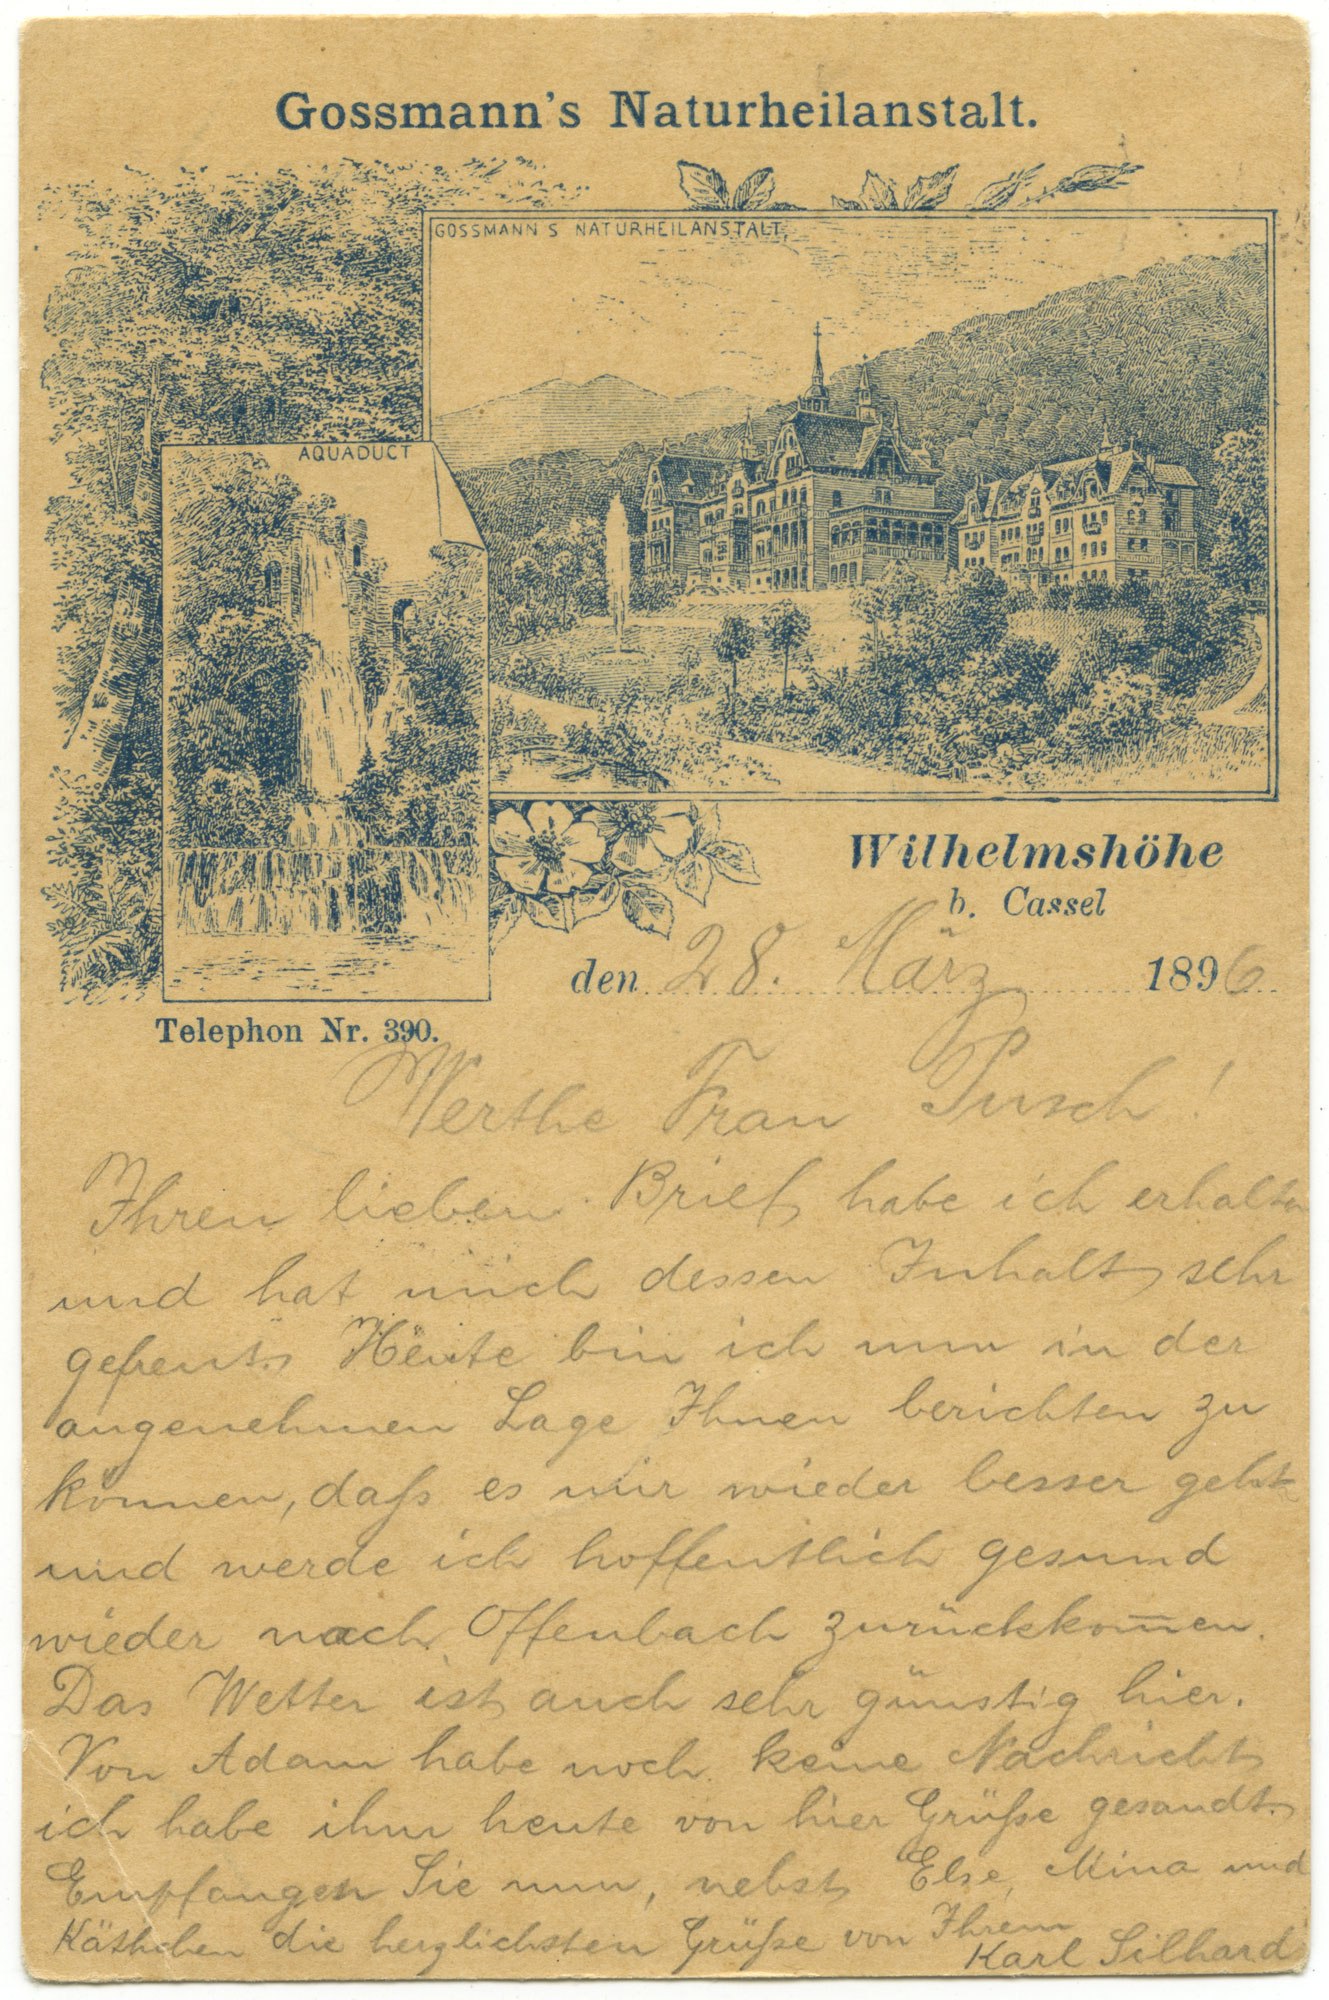 Gossmann's Naturheilanstalt.
GOSSMANN S NATURHEILANSTALT,
AQUADUCT
Wilhelmshöhe
b. Cassel
den 28. März 1896
Telephon Nr. 390.
Werthe Frau Pusch!
Ihren lieben Brief habe ich erhalten
und hat mich dessen Inhalt sehr
gefreut. Heute bin ich nun in der
angenehmen Lage Ihnen berichten zu
können, daß es mir wieder besser geht
und werde ich hoffentlich gesund
wieder nach Offenbach zurückkom̅en.
Das Wetter ist auch sehr günstig hier.
Von Adam habe noch keine Nachricht
ich habe ihm heute von hier Grüße gesandt.
Empfangen Sie nun, nebst Else, Mina und
Käthchen die herzlichsten Grüße von Ihrem
Karl Silhard